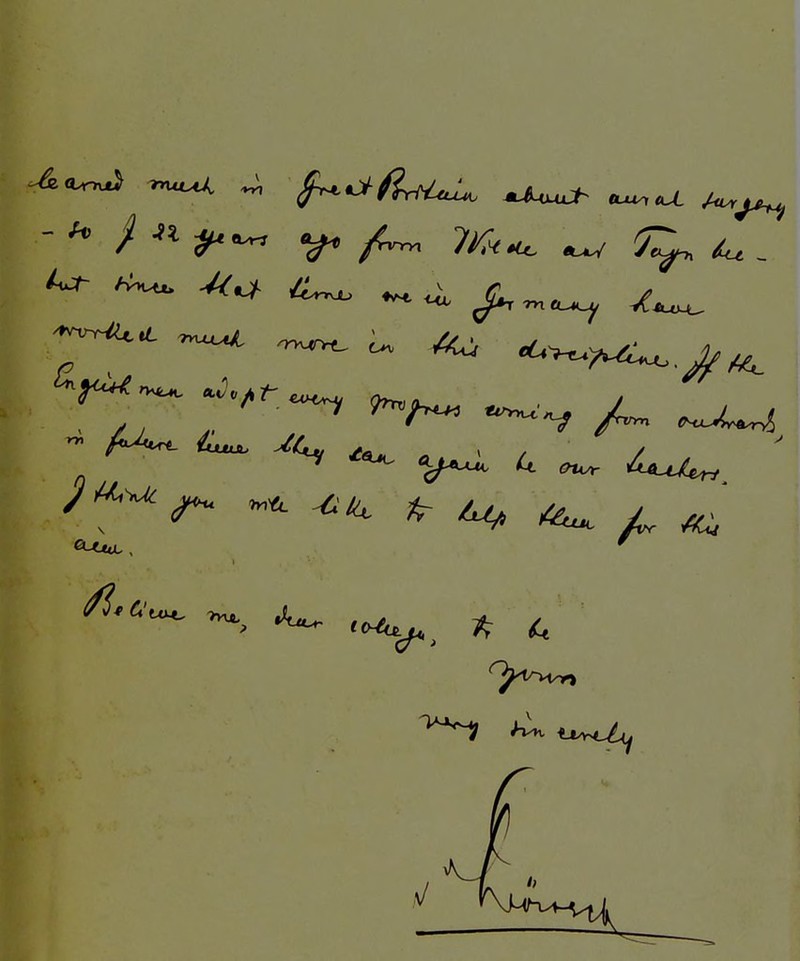 learned much in Great Britain about aural surgery
- so I 22 years ago from Wilde and Toynbee -
but since that time we in Germany have
worked much more in this discipline. If the
English men adopt every progress coming from outward,
in future time they can again be our leaders.
I think you will like to help them for this
aim.
Believe me, dear college, to be
Yours
very sincerely